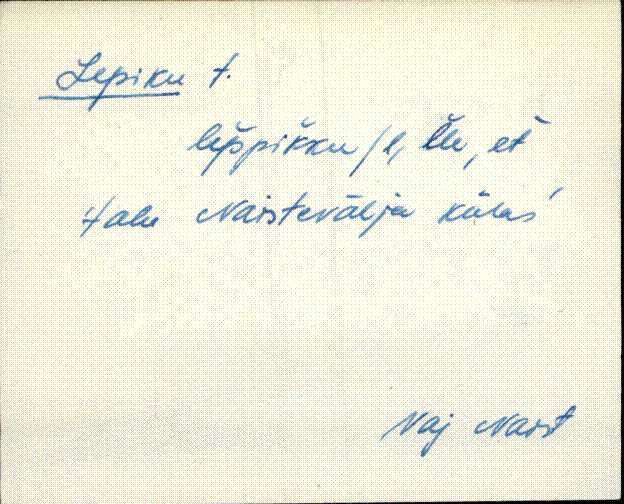 Lepiku t.
lep̆pik̆ku /l, l̆le, et̆
Talu Naistevälja külas
Vaj Naist